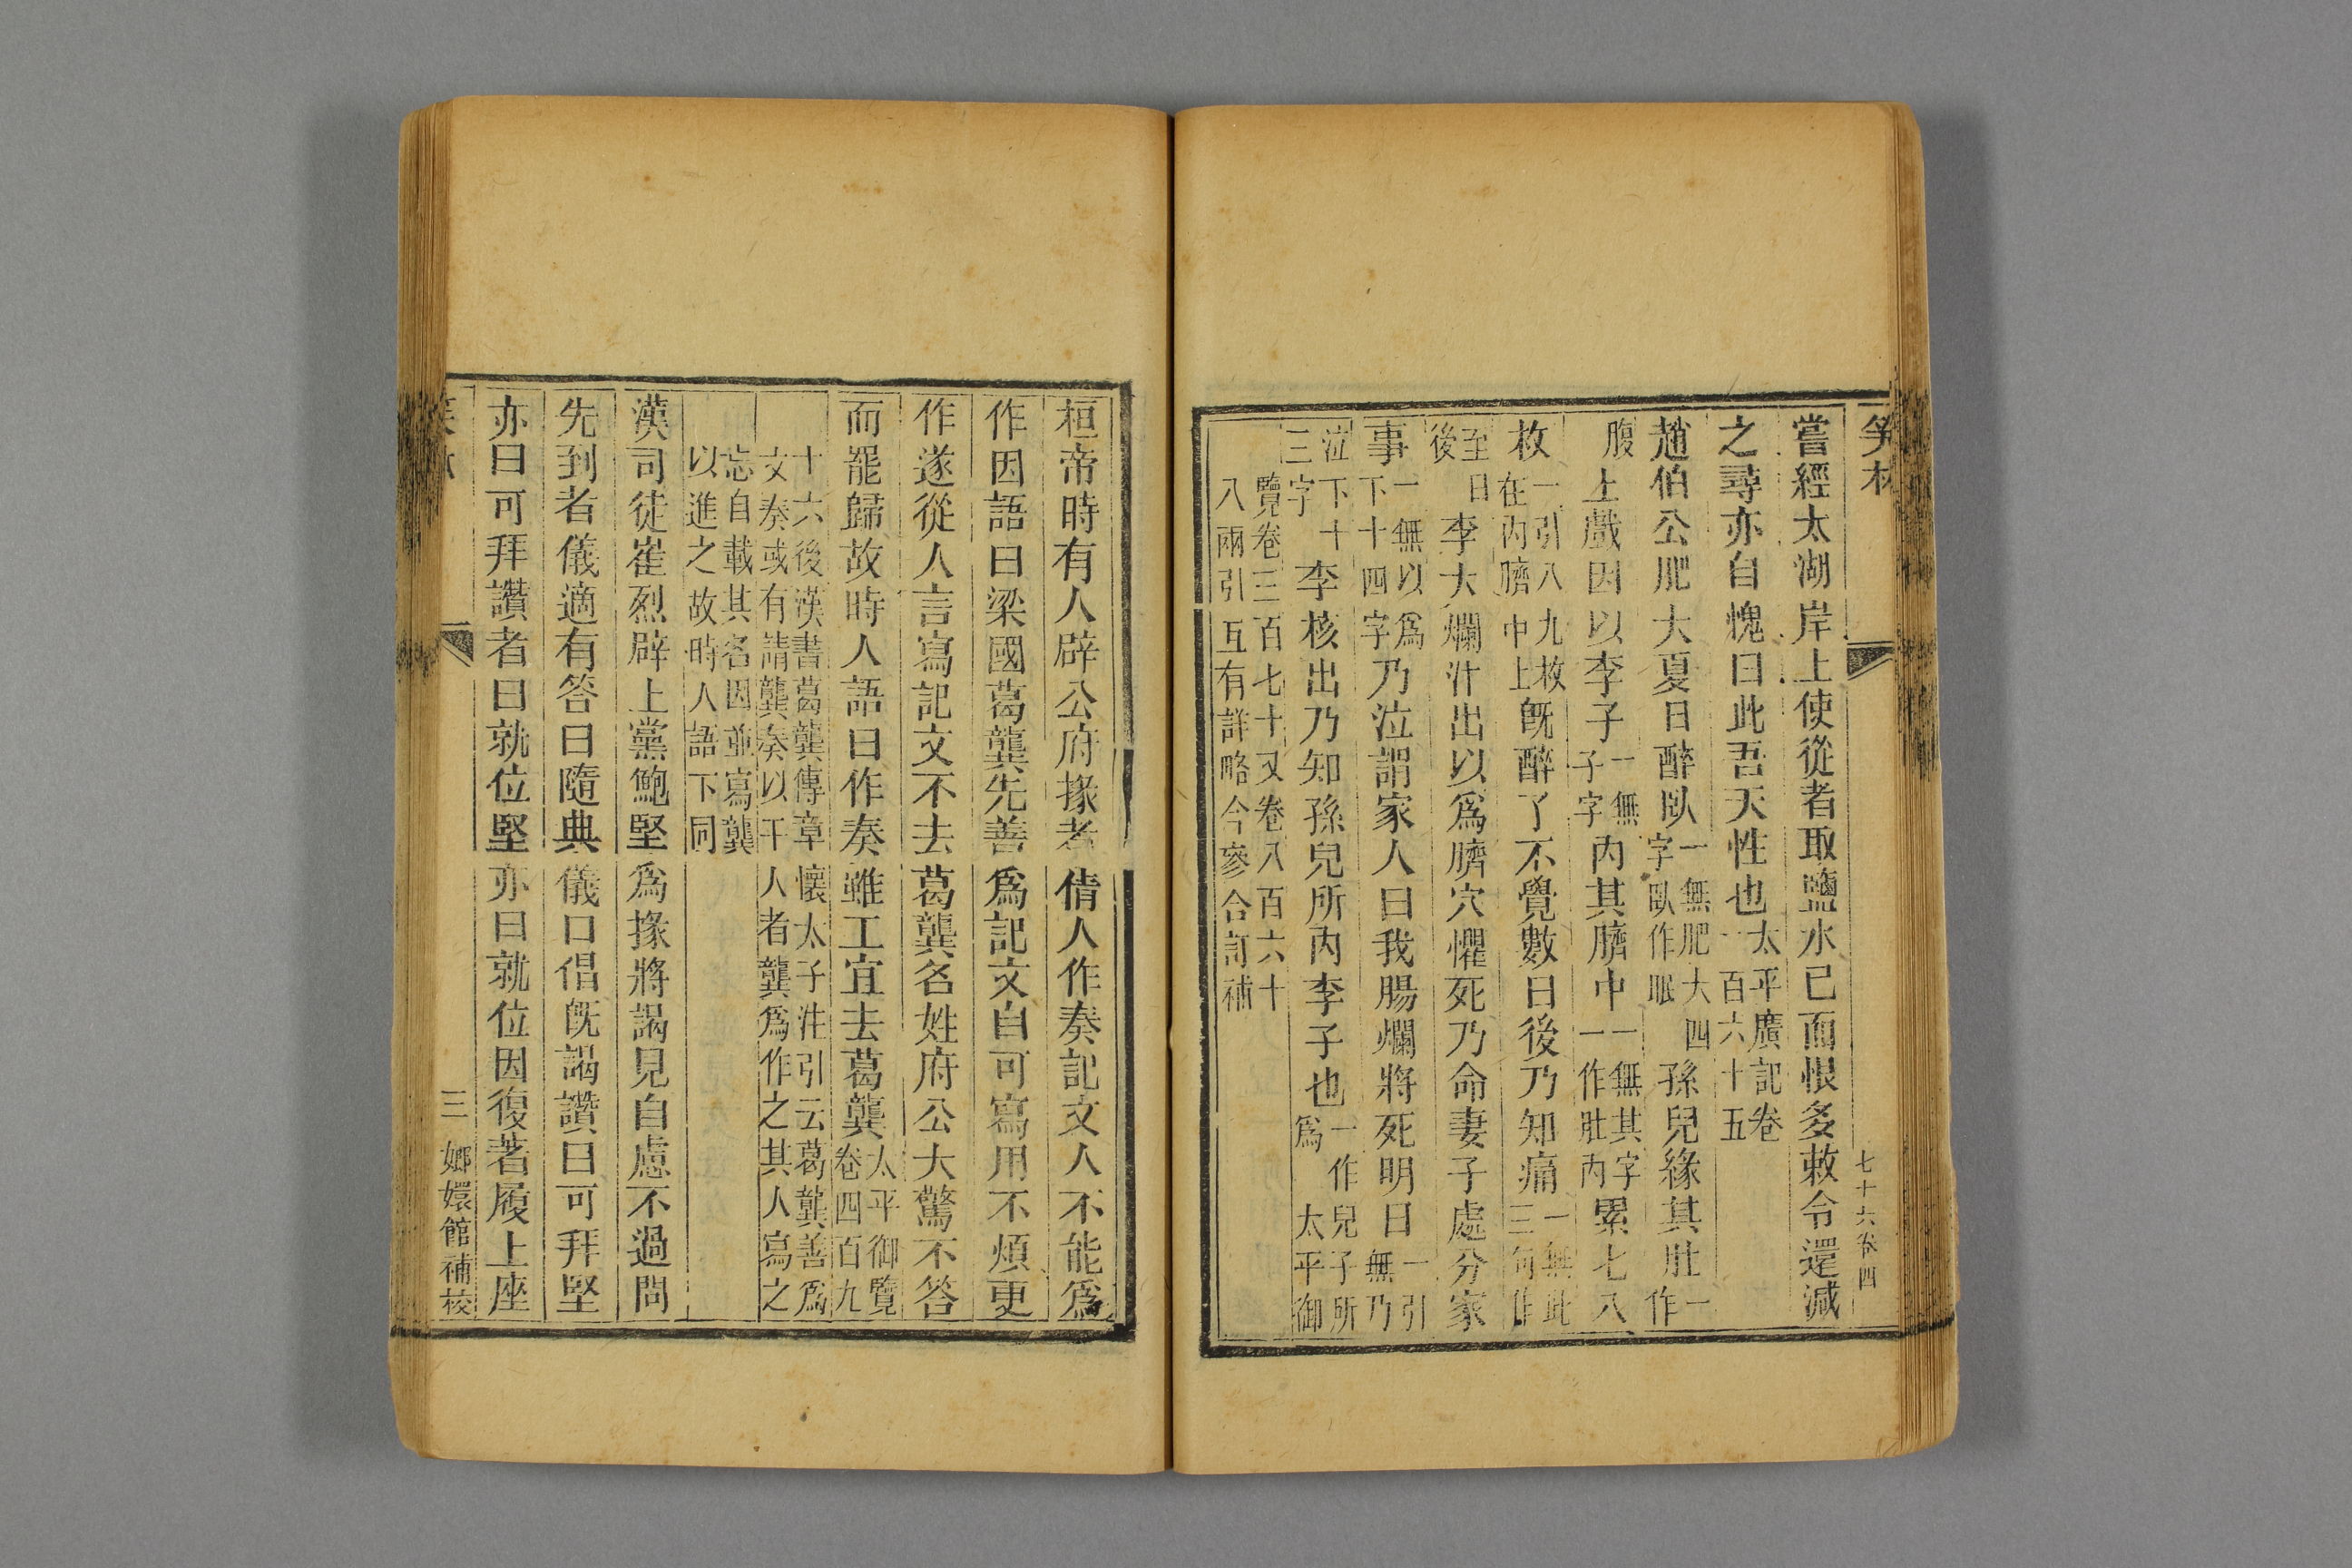 笑林
七十六卷四
嘗經太湖岸上使從者取鹽水已而恨多敕令還減
之尋亦自愧曰此吾天性也太平廣記卷一百六十五
趙伯公肥大夏日醉臥一無肥大四字臥作眠孫兒緣其肚一作
腹上戲因以李子一無子字內其臍中一無其字一作肚內累七八
枚一引八九枚在內臍中上旣醉了不覺數日後乃知痛一無此三句作
至後日李大爛汁出以爲臍穴懼死乃命妻子處分家
事一無以爲下十四字乃泣謂家人曰我腸爛將死明日一引無乃
泣下十三字李核出乃知孫兒所內李子也一作兒子所爲太平御
覽卷三百七十又卷八百六十八兩引互有詳略今參合訂補
桓帝時有人辟公府掾者倩人作奏記文人不能爲
作因語曰梁國葛龔先善爲記文自可寫用不煩更
作遂從人言寫記文不去葛龔名姓府公大驚不答
而罷歸故時人語曰作奏雖工宜去葛龔太平御覽卷四百九
十六後漢書葛龔傳章懷太子注引云葛龔善爲文奏或有請龔奏以干人者龔爲作之其人寫之
忘自載其名因並寫龔以進之故時人語下同
漢司徒崔烈辟上黨鮑堅爲掾將謁見自慮不過問
先到者儀適有答曰隨典儀口倡旣謁讚曰可拜堅
亦曰可拜讚者曰就位堅亦曰就位因復著履上座
三
嫏嬛館補校